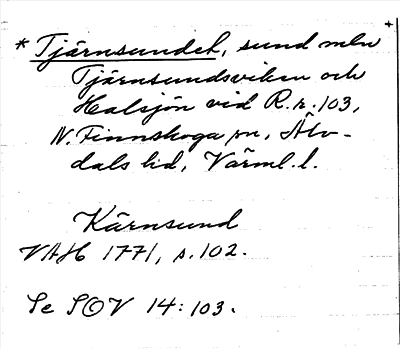 * Tjärnsundet, sund mln
Tjärnsundsviken och
Halsjön vid R.r. 103,
N. Finnskoga sn, Älv-
dals hd, Värml. l.
Kärnsund
VAH 1771, s. 102.
Se SOV 14:103.